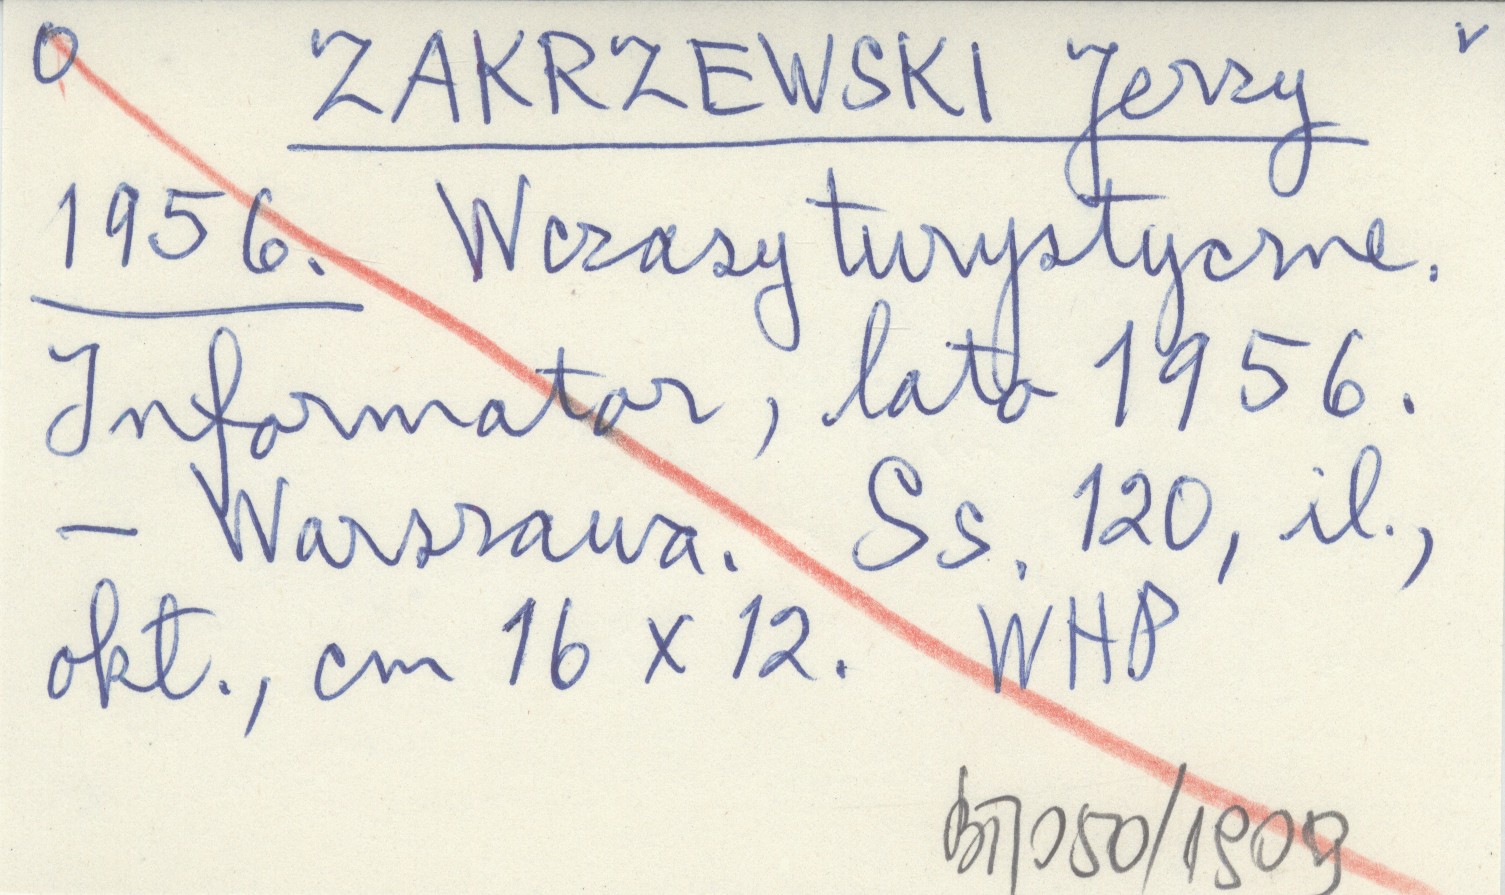 0 ZAKRZEWSKI Jerzy v
1956. Wczasy turystyczne.
Informator, lato 1956.
– Warszawa. Ss. 120, il.,
okt., cm 16 x 12. WHP
050/1909